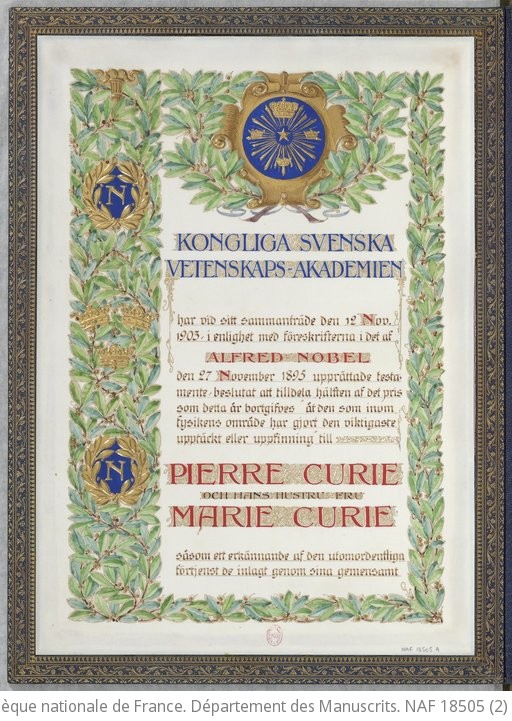 N
KONGLIGA SVENSKA
VETENSKAPS-AKADEMIEN
har vid sitt sammanträde den 12 Nov.
1903, i enlighet med föreskrifterna i det af
ALFRED NOBEL
den 27 November 1895 upprättade testa-
mente, beslutat att tilldela hälften af det pris
som detta år bortgifves "åt den som inom
fysikens område har gjort den viktigaste
upptäckt eller uppfinning" till
N
PIERRE CURIE
OCH HANS HUSTRU FRU
MARIE CURIE
såsom ett erkännande af den utomordentliga
förtjenst de inlagt genom sina gemensamt
NAF 18505 A
èque nationale de France. Département des Manuscrits. NAF 18505 (2)